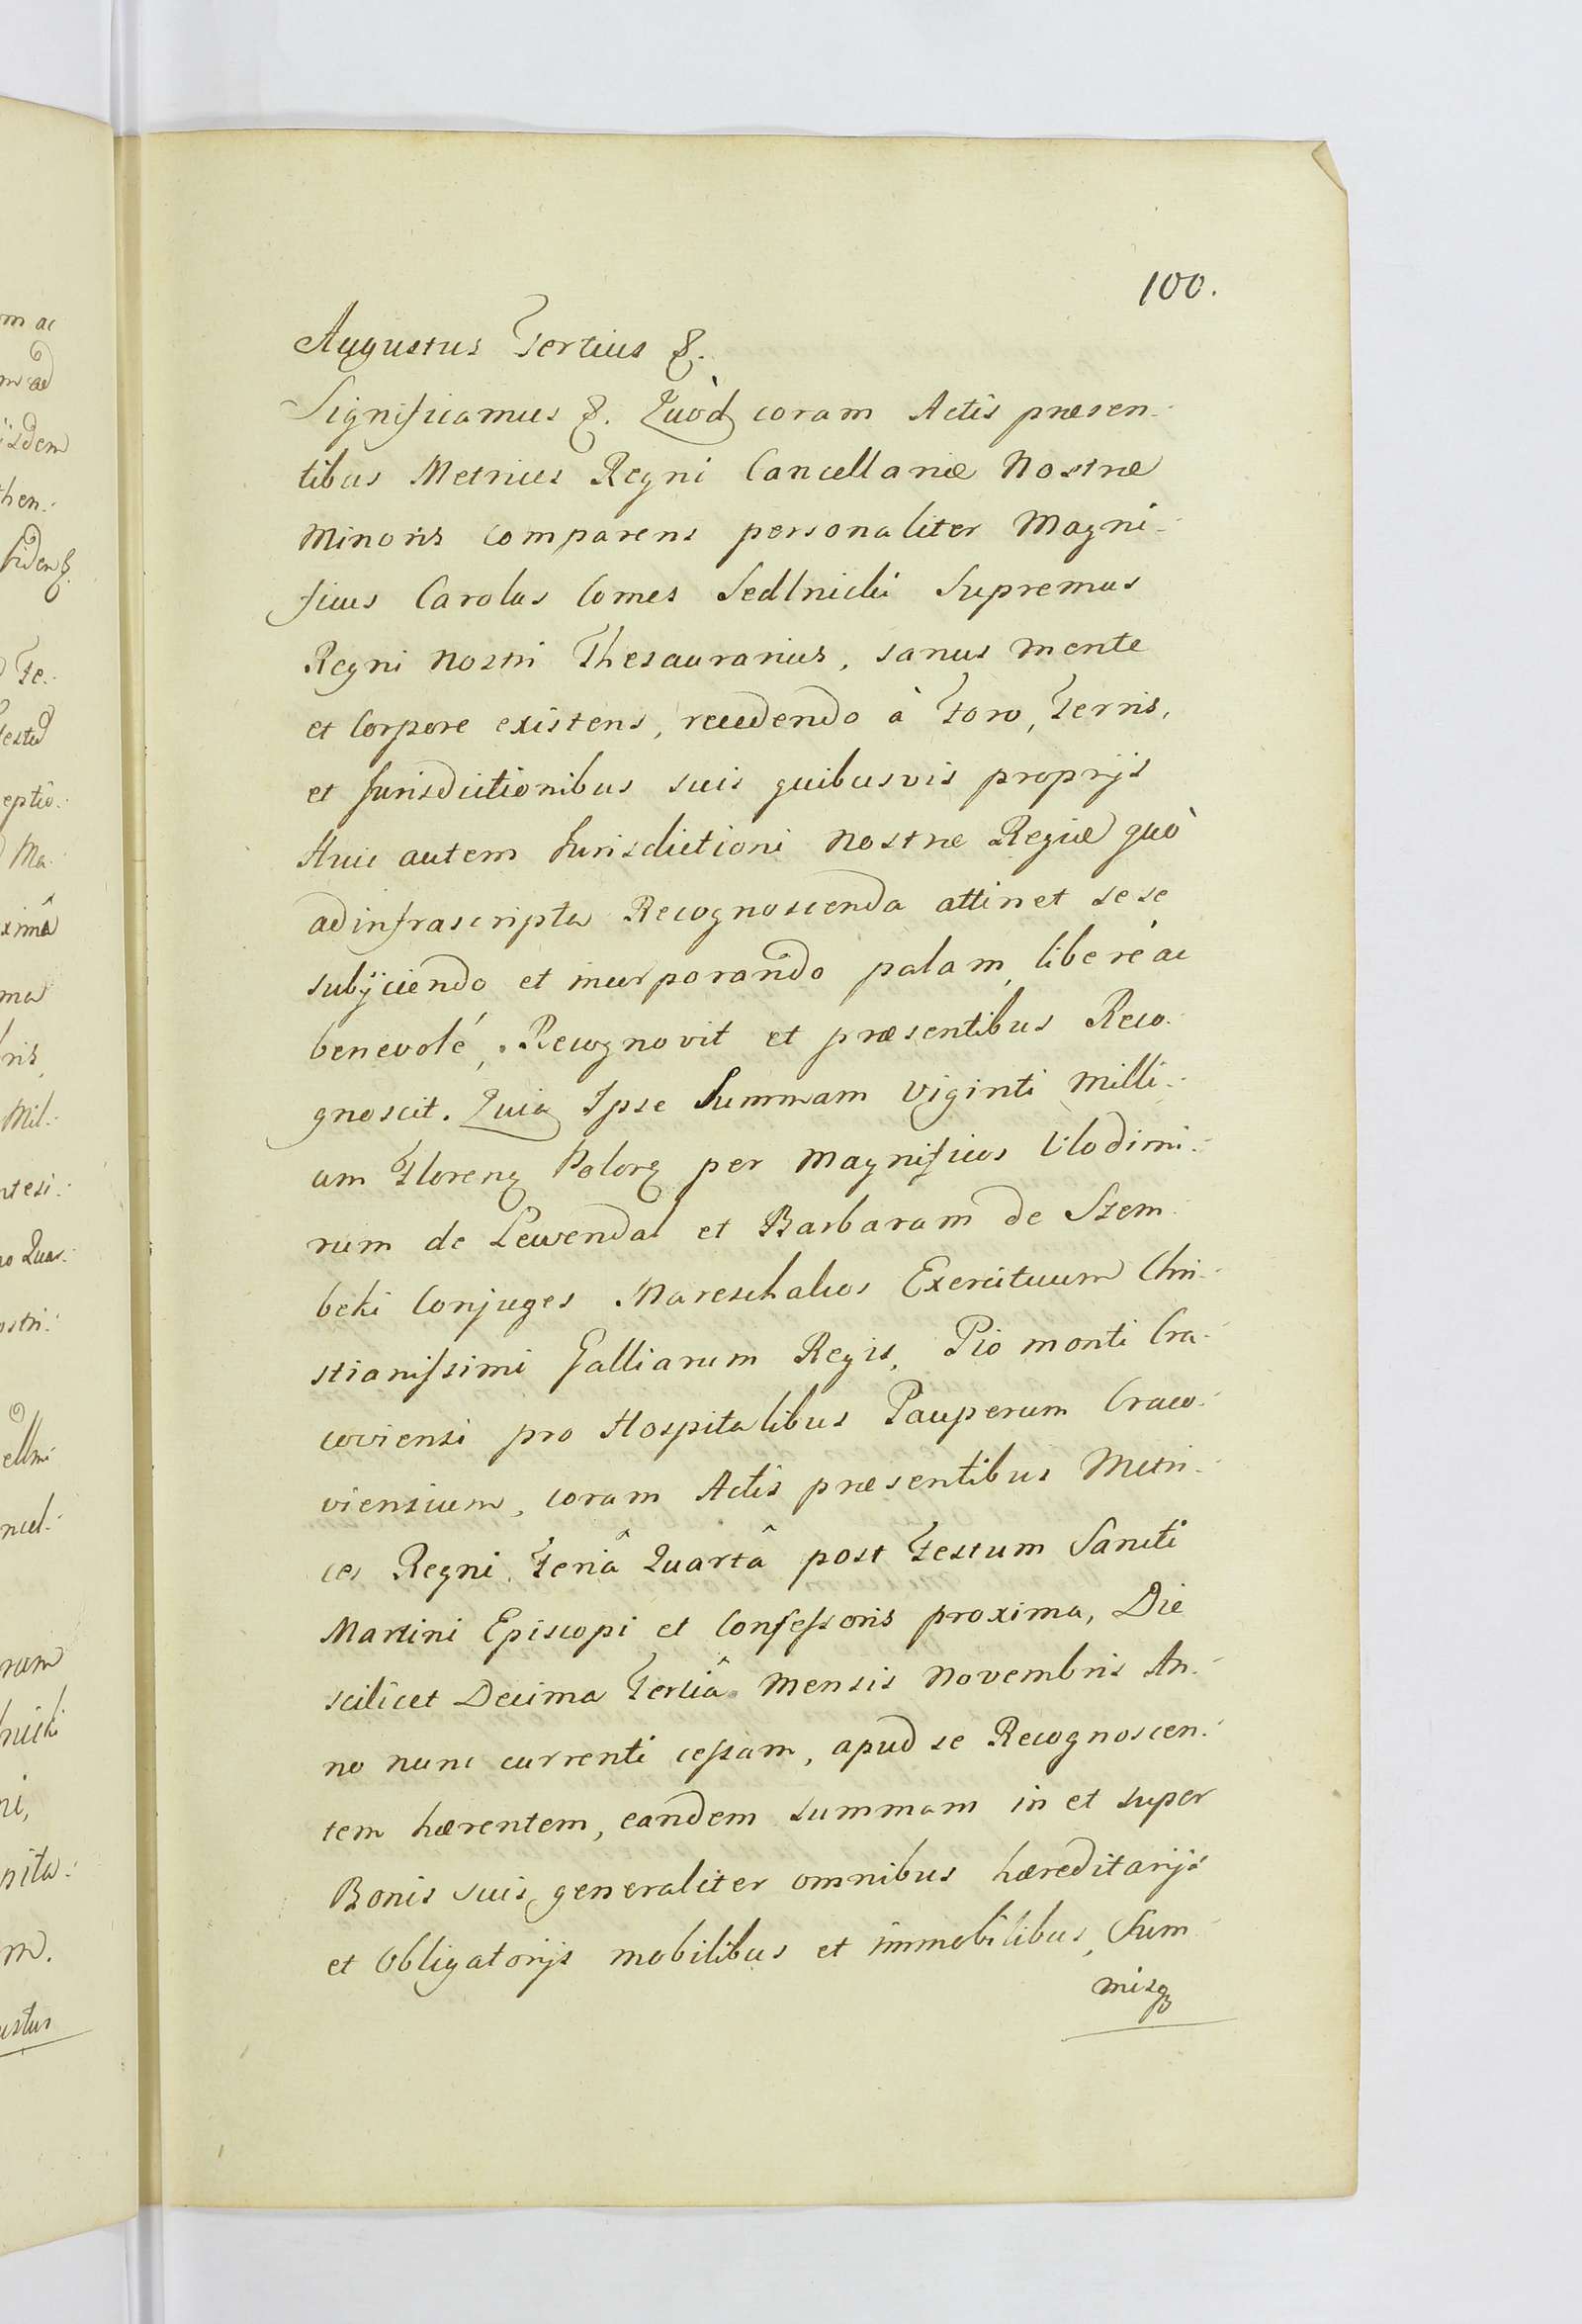 100.
Augustus Tertius &.
Significamus &. Quòd coram Actis præsen-
tibus Metrices Regni Cancellariæ Nostræ
Minoris comparens personaliter Magni-
ficus Carolus Comes Sedlnicki Supremus
Regni Nostri Thesaurarius, sanus mente
et Corpore existens, recedendo à Foro, Terris,
et Jurisdictionibus suis quibusvis proprijs
Huic autem Jurisdictioni Nostræ Regiæ quò
ad infrascripta Recognoscenda attinet sese
subijciendo et incorporando palam, liberè ac
benevolé, Recognovit et præsentibus Reco-
gnoscit. Quia Ipse Summam Viginti Milli-
um Florenꝝ Polonꝝ per Magnificos Vlodimi-
rum de Lewendal et Barbaram de Szem-
beki Conjuges Mareschalcos Exercituum Chri-
stianissimi Galliarum Regis, Pio monti Cra-
coviensi pro Hospitalibus Pauperum Craco-
viensium, coram Actis præsentibus Metri-
ces Regni Feriâ Quartâ post Festum Sancti
Martini Episcopi et Confessoris proxima, Die
scilicet Decima Tertiâ Mensis Novembris An-
no nunc currenti cessam, apud se Recognoscen-
tem hærentem, eandem summam in et super
Bonis suis generaliter omnibus hæreditarijs
et Obligatorijs mobilibus et immobilibus, Sum-
misqꝫ